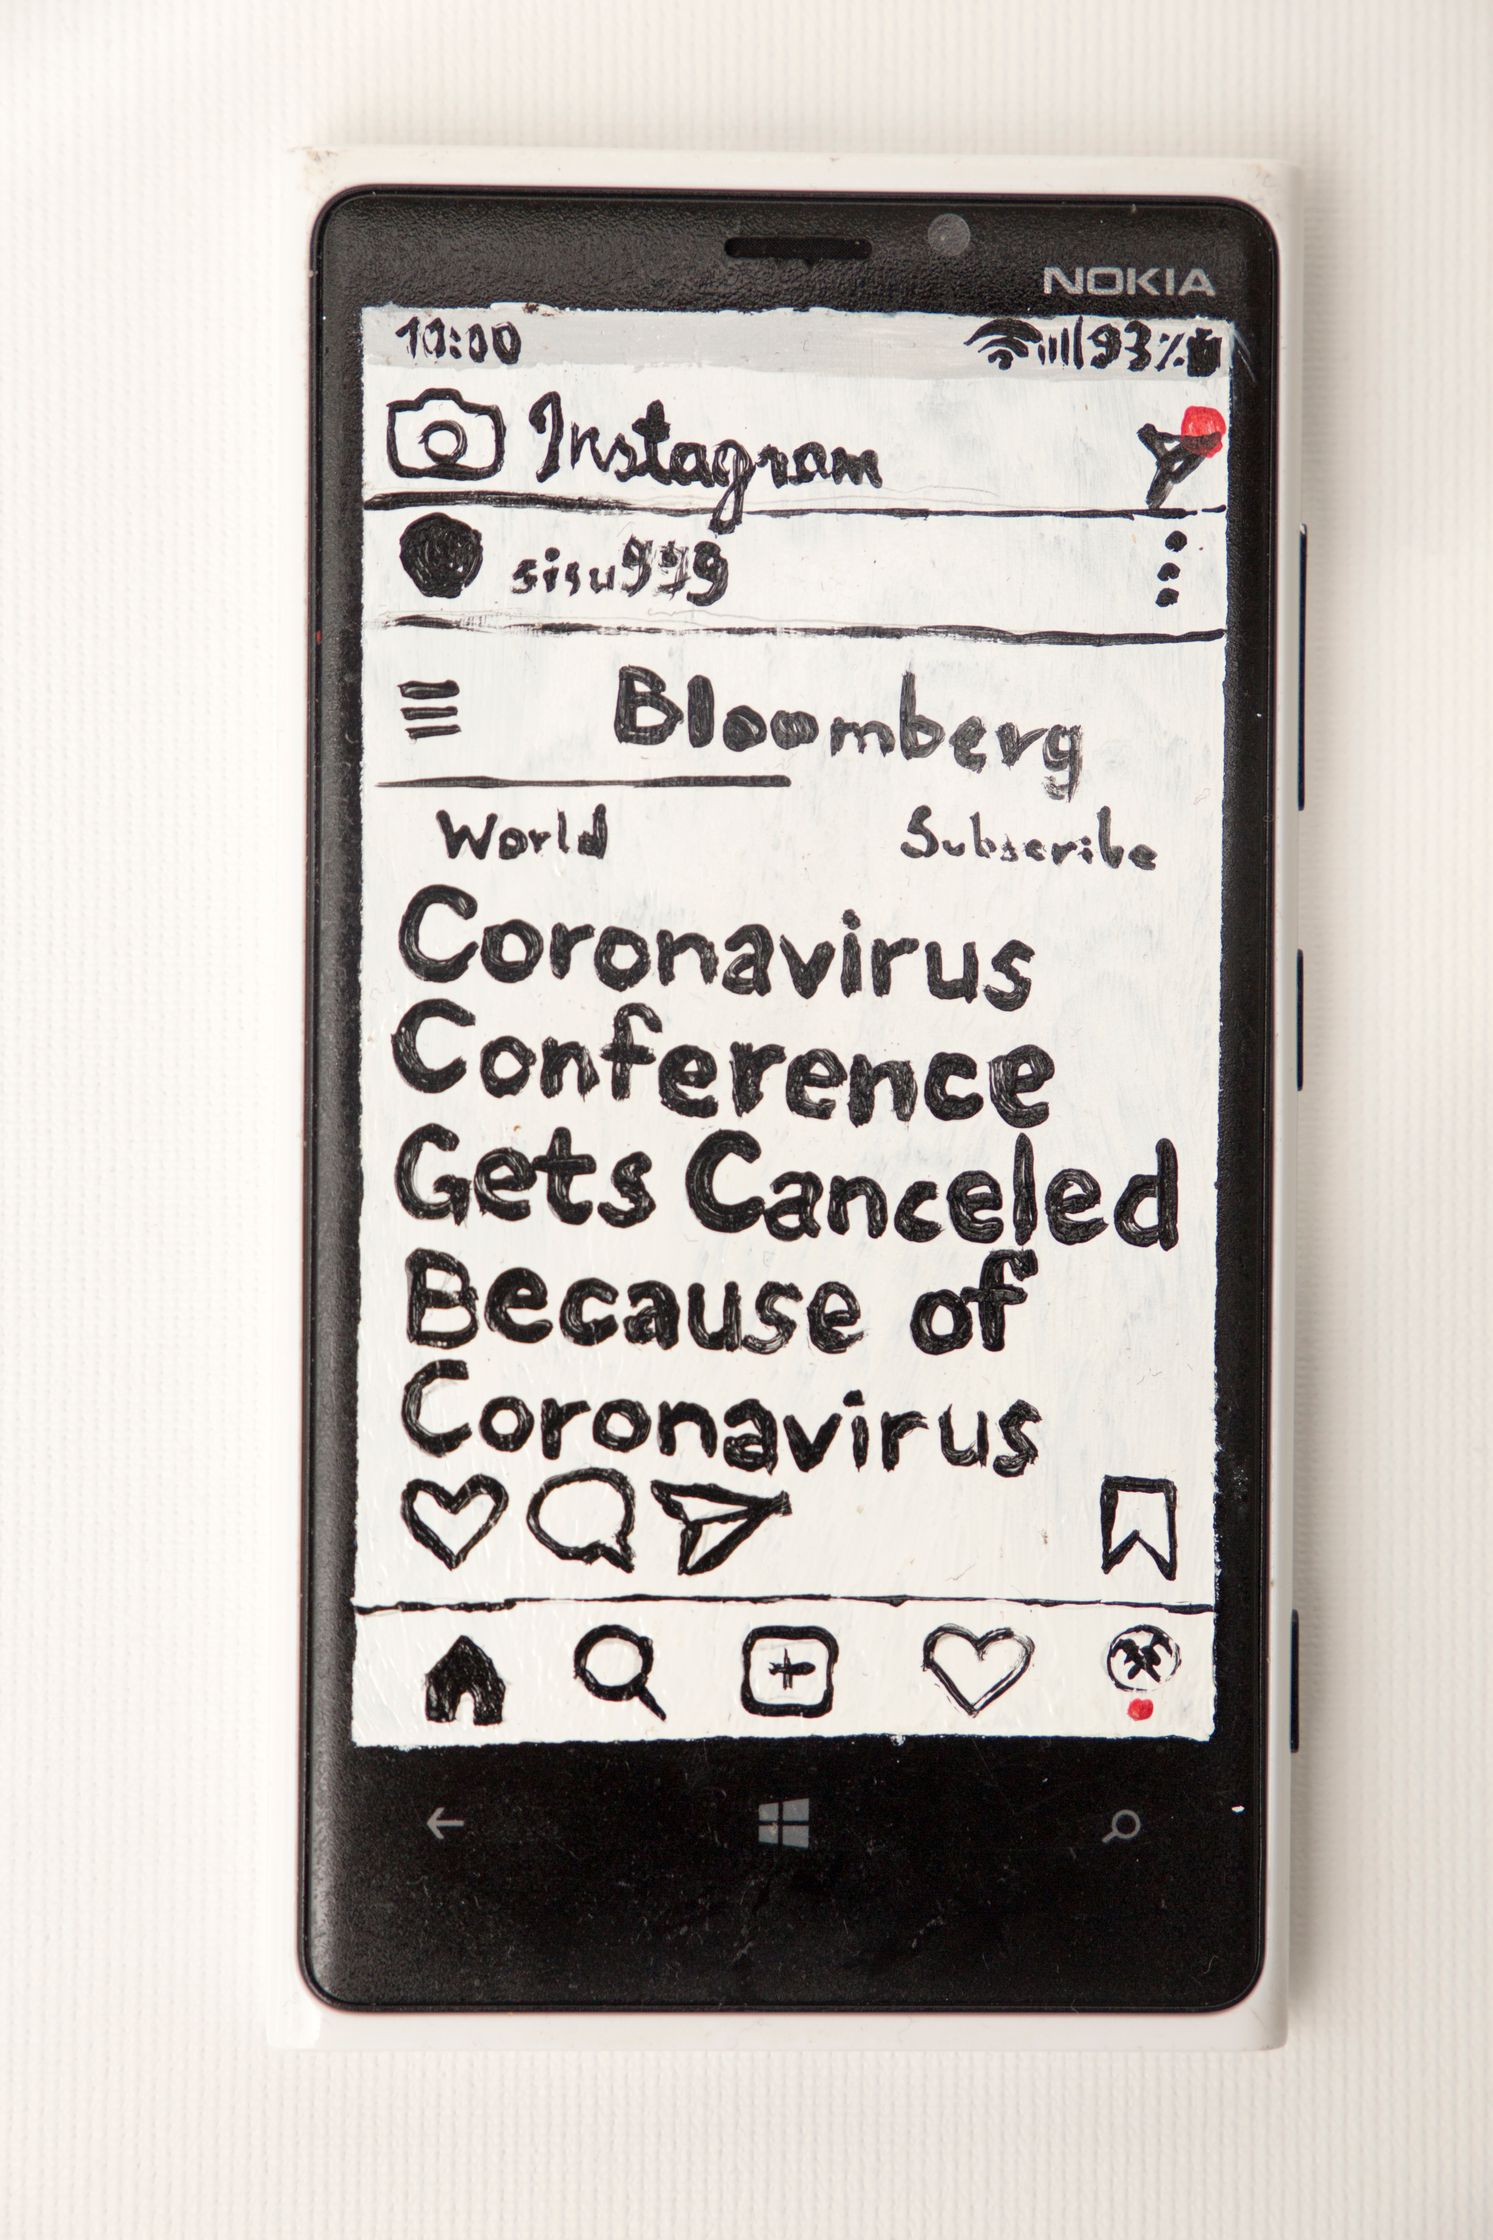 NOKIA
10:00 93%
Instagram
sisu979
Bloomberg
World Subscribe
Coronavirus
Conference
Gets Canceled
Because of
Coronavirus